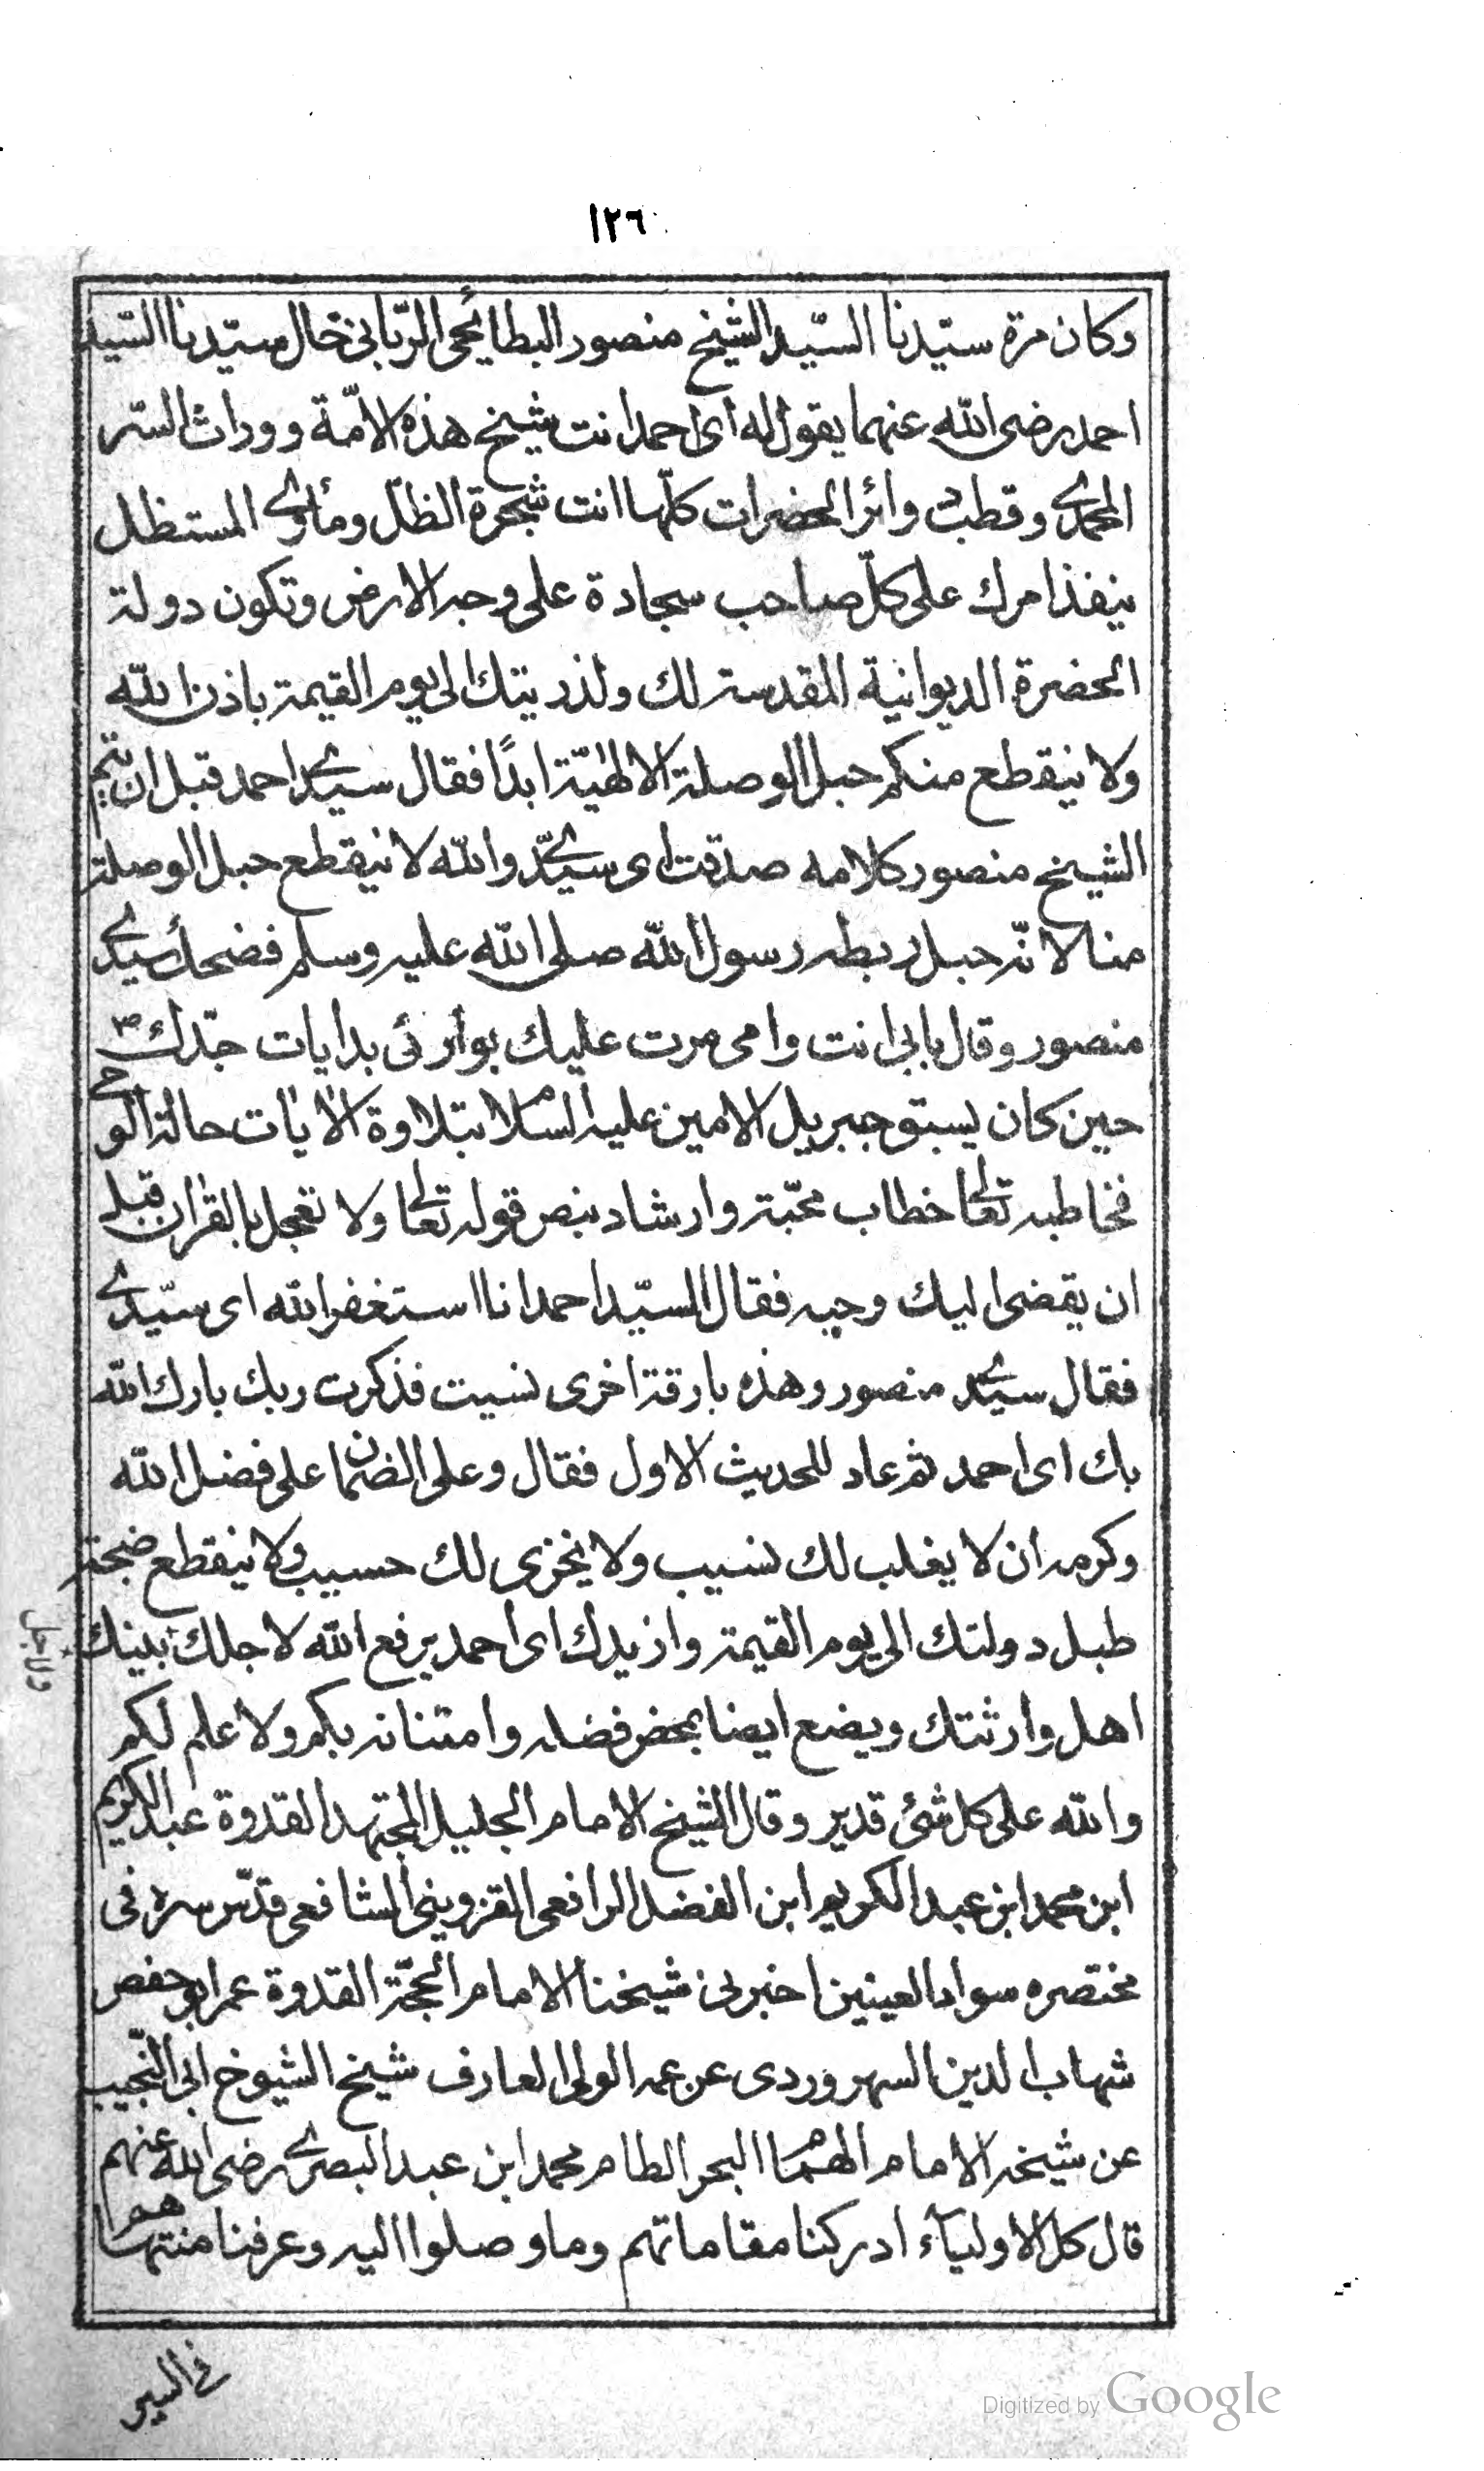 ١٢٦
وكان مرة سيّدنا السيّد الشيخ منصور البطايحى الرّبانى خال سيّدنا السّيد
احمد رضى الله عنهما يقول له اى احمد انت شيخ هذه الامّة وورات السّر
المحمدى وقطب دوائر الحضرات كلّها انت شجرة الظلّ ومأوى المستظل
ينفذ امرك على كلّ صاحب سجادة على وجه الارض وتكون دولة
الحضرة الديوانية المقدسة لك ولذريتك الى يوم القيمة باذن الله
ولا ينقطع منكم حبل الوصلة الالهيّة ابدًا فقال سيدى احمد قبل ان يتم
الشيخ منصور كلامه صدقت اى سيدّى والله لا ينقطع حبل الوصلة
منا لانّه حبل ربطه رسول الله صلى الله عليه وسلم فضحك سيدى
منصور وقال بابى انت وامى مرت عليك بوارئ بدايات جدّك ص
حين كان يسبق جبريل الامين عليه السلام بتلاوة الايات حالة الوحى
فخاطبه تعالى خطاب محبّة وارشاد بنص قوله تعالى ولا تعجل بالقران قبل
ان يقضى اليك وحيه فقال السيّد احمد انا استغفر الله اى سيّدى
فقال سيدى منصور وهذه بارقة اخرى نسيت فذكرت ربك بارك الله
بك اى احمد ثم عاد للحديث الاول فقال وعلى الضمان على فضل الله
وكرمه ان لا يغلب لك نسيب ولا يخزى لك حسيب ولا ينقطع ضجة
طبل دولتك الى يوم القيمة وازيدك اى احمد يرفع الله لاجلك بينك
اهل وارثتك ويضع ايضا بمحض فضله وامتنانه بكم ولا علم لكم
والله على كل شئ قدير وقال الشيخ الامام الجليل المجتهد القدوة عبد الكريم
ابن محمد ابن عبد الكريم ابن الفضل الرافعى القزوينى الشافعى قدّس سره فى
مختصره سواد العينين اخبرنى شيخنا الامام الحجّة القدوة عمر ابو حفص
شهاب الدين السهروردى عن عمه الولى العارف شيخ الشيوخ ابى النّجيب
عن شيخه الامام الهمام البحر الطام محمد ابن عبد البصرى رضى الله عنهم
قال كل الاولياء ادركنا مقاماتهم وما وصلوا اليه وعرفنا منتهاهم
فى السير
Digitized by Google